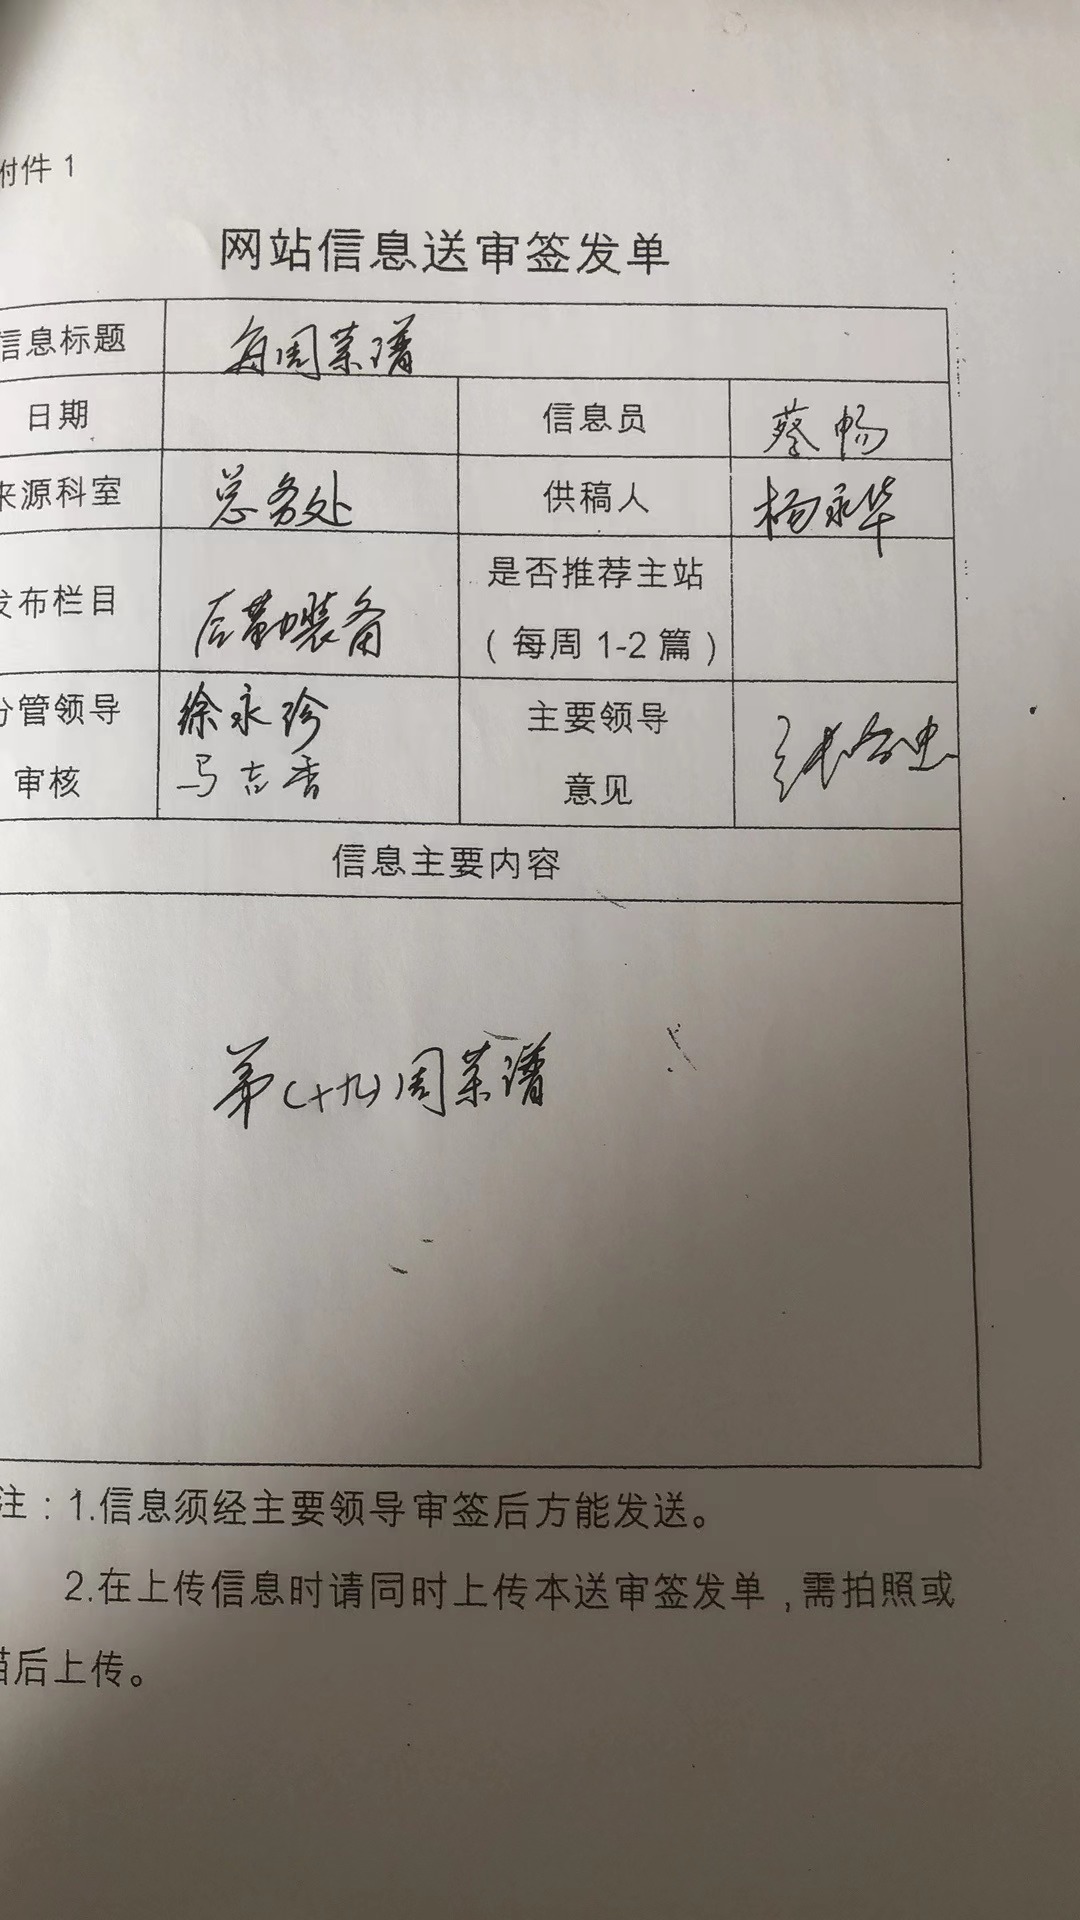 附件 1
网站信息送审签发单
信息标题 每周菜谱
日期 信息员 蔡畅
来源科室 总务处 供稿人 杨永华
发布栏目 后勤装备 是否推荐主站
（每周 1-2 篇）
分管领导 徐永珍 主要领导
审核 马吉香 意见
信息主要内容
第(十九)周菜谱
注：1.信息须经主要领导审签后方能发送。
2.在上传信息时请同时上传本送审签发单，需拍照或
描后上传。